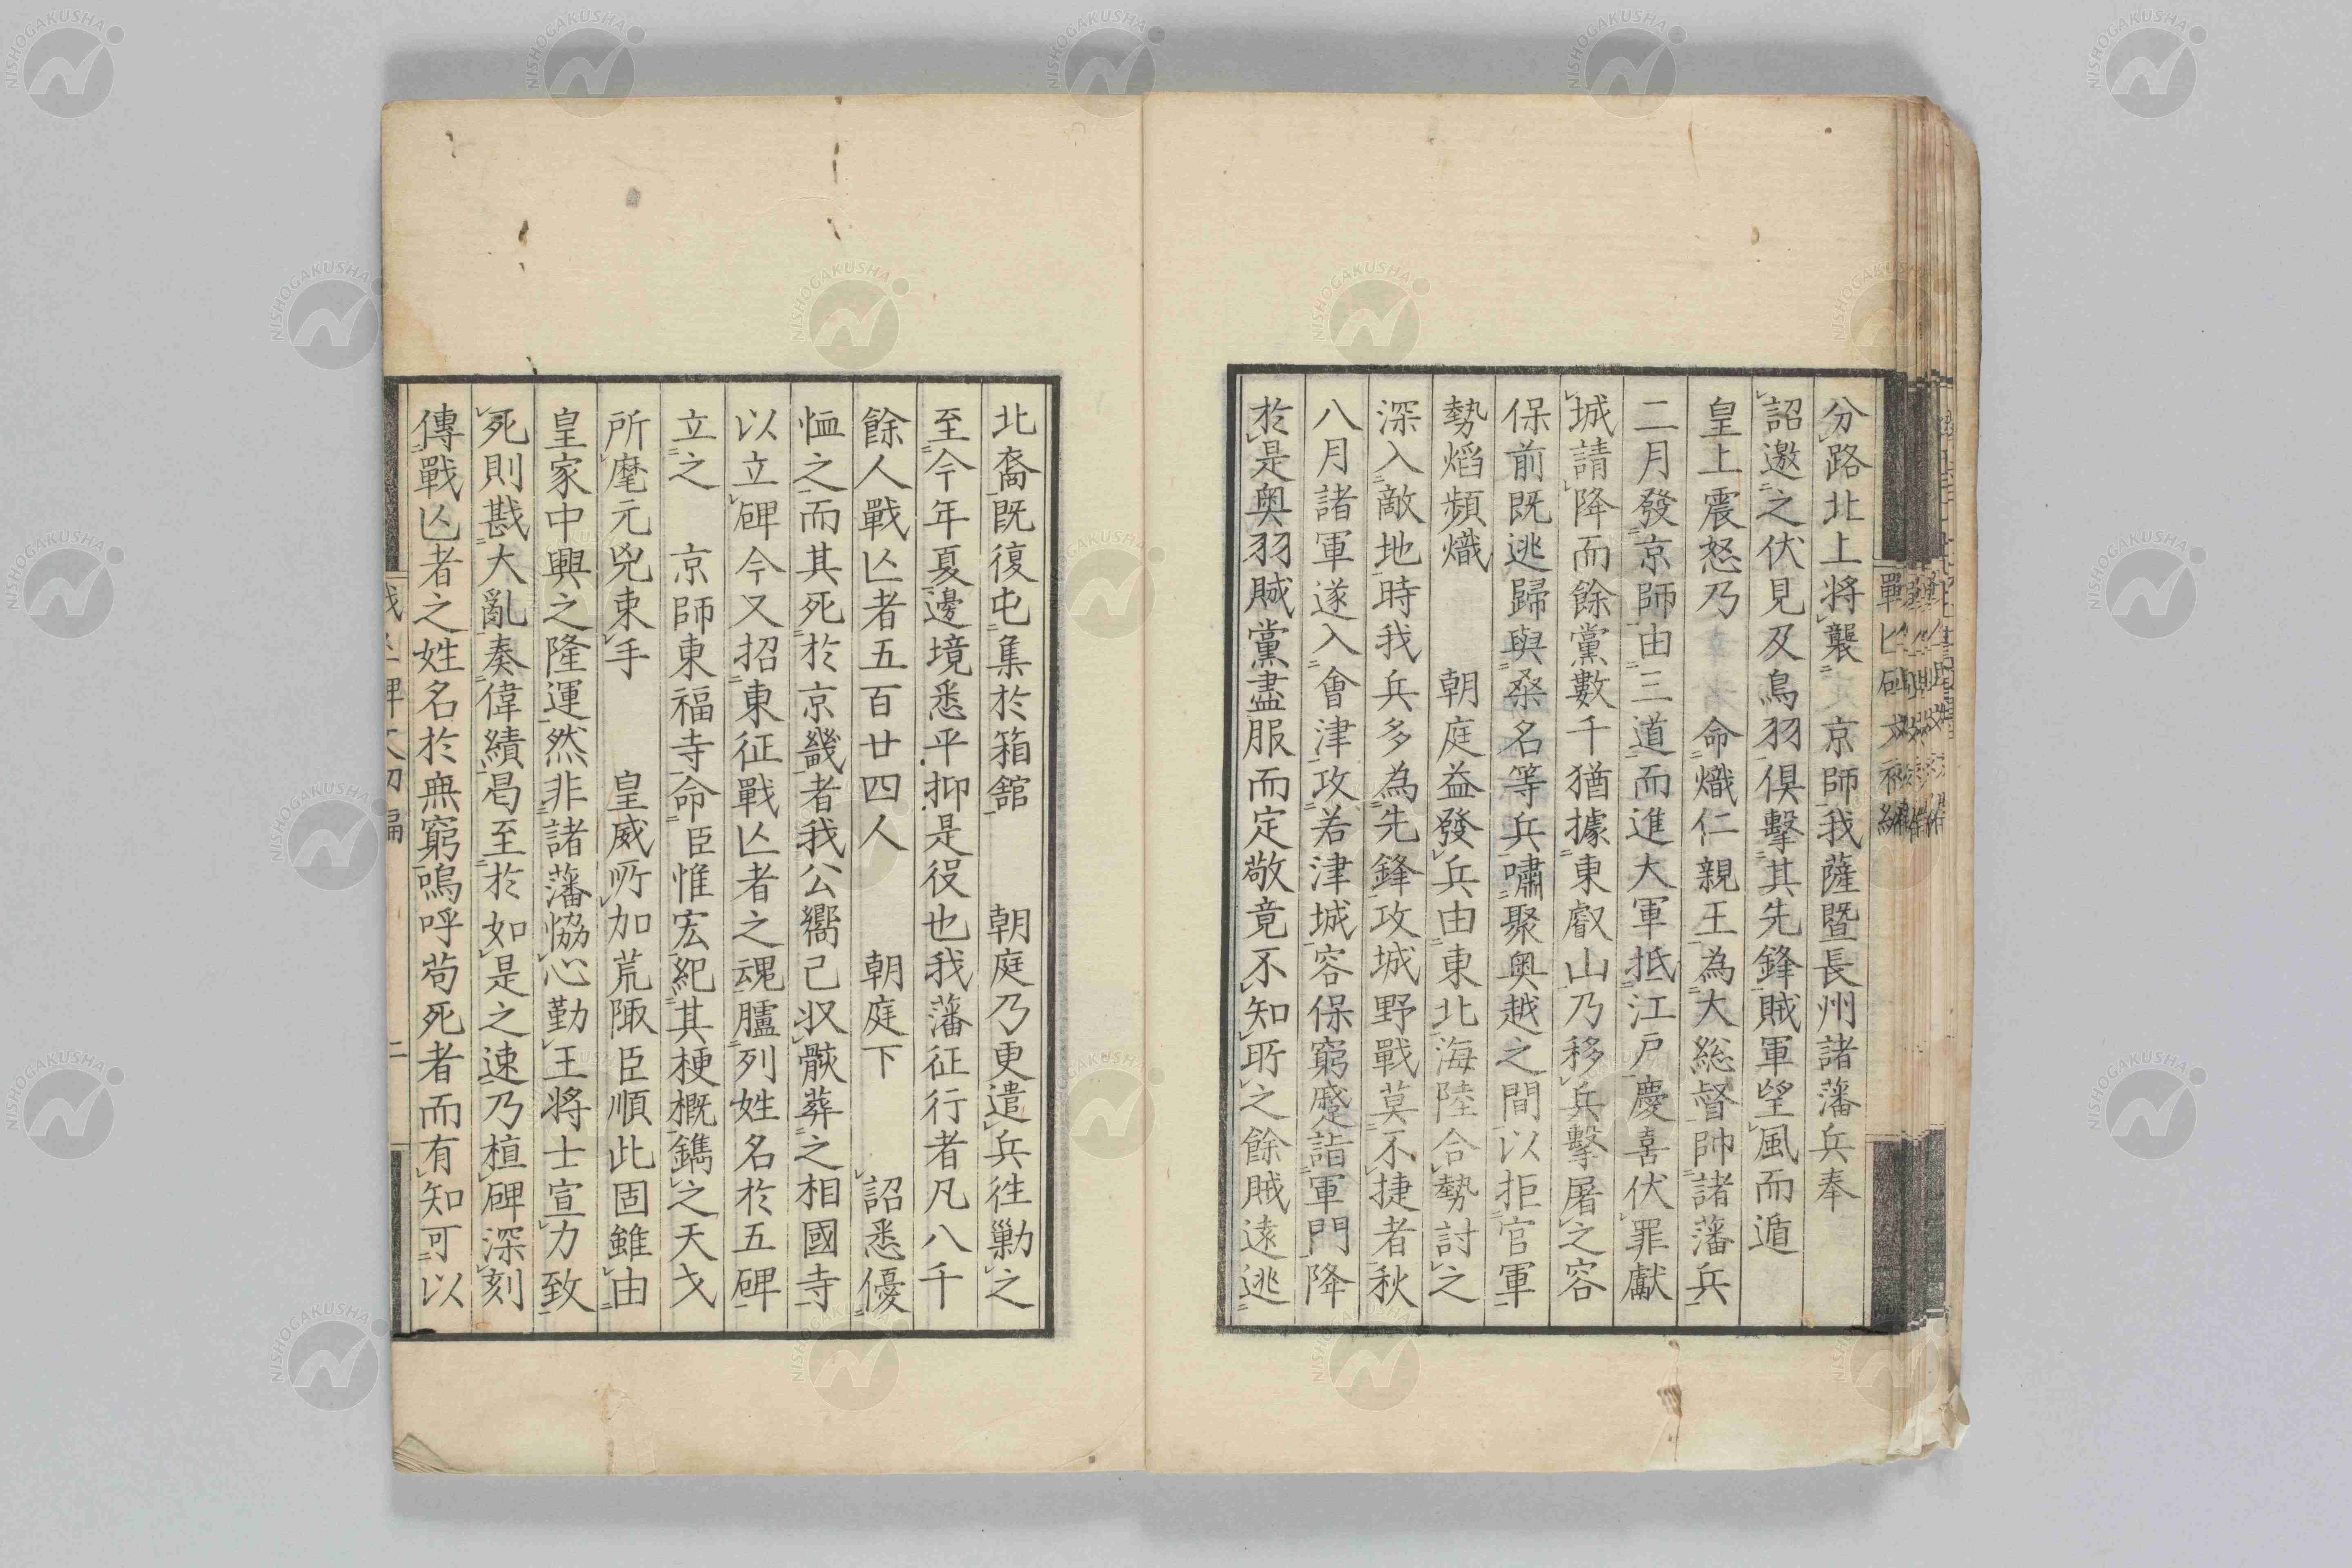 分路北上將襲　京師我薩曁長州諸藩兵奉
詔邀之伏見及鳥羽俱擊其先鋒賊軍望風而遁
皇上震怒乃　命熾仁親王為大総督帥諸藩兵
二月發京師由三道而進大軍抵江戸慶喜伏罪獻
城請降而餘黨數千猶據東叡山乃移兵擊屠之容
保前既逃歸與桑名等兵嘯聚奥越之間以拒官軍
勢熖頻熾　朝庭益發兵由東北海陸合勢討之
深入敵地時我兵多為先鋒攻城野戰莫不捷者秋
八月諸軍遂入會津攻若津城容保窮蹙詣軍門降
於是奥羽賊黨盡服而定敬竟不知所之餘賊遠逃
北裔既復屯集於箱舘　朝庭乃更遣兵往勦之
至今年夏邊境悉平抑是役也我藩征行者凡八千
餘人戰亾者五百廿四人　朝庭下　詔悉優
恤之而其死於京畿者我公嚮己収骸葬之相國寺
以立碑今又招東征戰亾者之魂臚列姓名於五碑
立之　京師東福寺命臣惟宏紀其梗概鐫之天戈
所麾元兇束手　皇威所加荒陬臣順此固雖由
皇家中興之隆運然非諸藩恊心勤王將士宣力致
死則戡大亂奏偉績曷至於如是之速乃植碑深刻
傳戰亾者之姓名於無窮嗚呼苟死者而有知可以
戰亾碑文初編
二
NISHOGAKUSHA